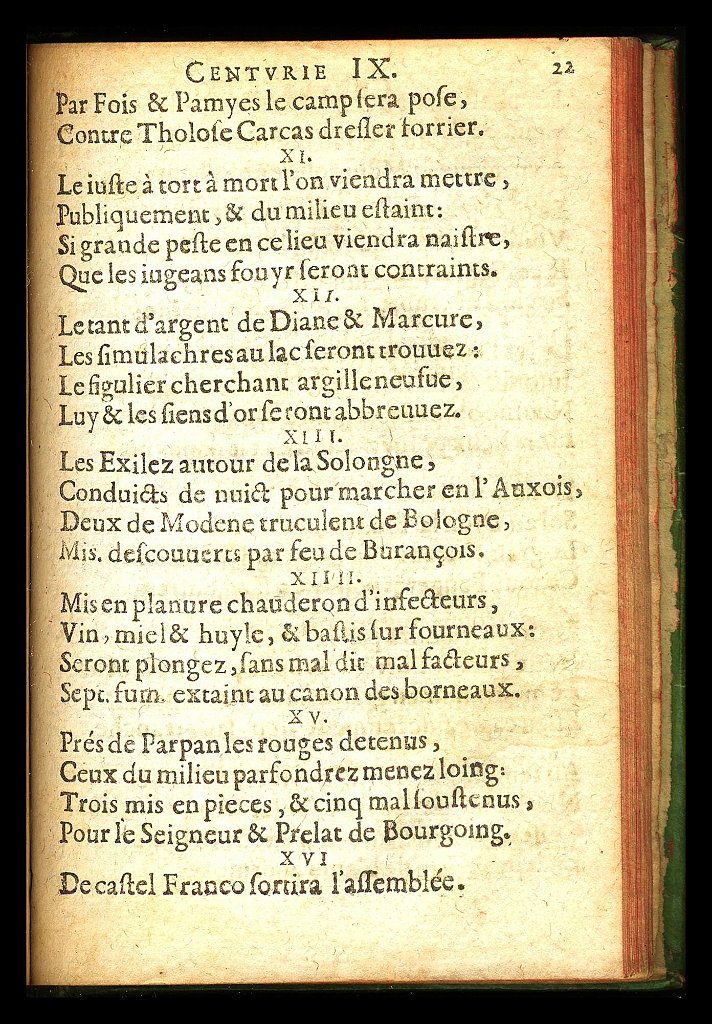 CENTVRIE IX. 22
Par Fois & Pamyes le camp ſera poſe,
Contre Tholoſe Carcas dreſſer forrier.
XI.
Le iuſte à tort à mort l'on viendra mettre,
Publiquement, & du milieu eſtaint:
Si grande peſte en ce lieu viendra naiſtre,
Que les iugeans fouyr ſeront contraints.
XII.
Le tant d'argent de Diane & Marcure,
Les ſimulachres au lac ſeront trouuez:
Le figulier cherchant argille neufue,
Luy & les ſiens d'or ſeront abbreuuez.
XIII.
Les Exilez autour de la Solongne,
Conduicts de nuict pour marcher en l'Auxois,
Deux de Modene truculent de Bologne,
Mis. deſcouuerts par feu de Burançois.
XIIII.
Mis en planure chauderon d'infecteurs,
Vin, miel & huyle, & baſtis ſur fourneaux:
Seront plongez, ſans mal dit mal facteurs,
Sept. fum. extaint au canon des borneaux.
XV.
Prés de Parpan les rouges detenus,
Ceux du milieu parfondrez menez loing:
Trois mis en pieces, & cinq mal ſouſtenus,
Pour le Seigneur & Prelat de Bourgoing.
XVI
De caſtel Franco ſortira l'aſſemblée.